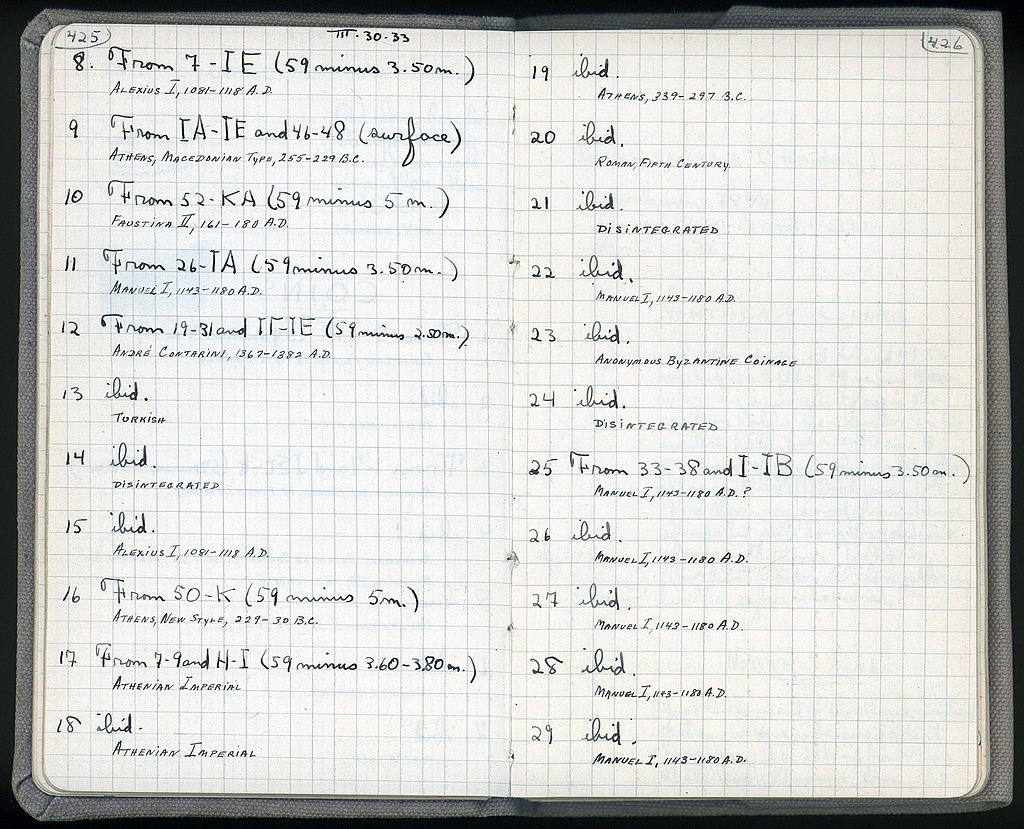 425
III·30·33
8. From 7-ΙΕ (59 minus 3.50m.)
ALEXIUS I, 1081-1118 A.D.
9 From ΙΑ-ΙΕ and 46-48 (surface)
ATHENS, MACEDONIAN TYPE, 255-229 B.C.
10 From 52-ΚΑ (59 minus 5 m.)
FAUSTINA II, 161-180 A.D.
11 From 26-ΙΑ (59 minus 3.50m.)
MANUEL I, 1143-1180 A.D.
12 From 19-31 and ΙΓ-ΙΕ (59 minus 2.50m.)
ANDRÉ CONTARINI, 1367-1382 A.D.
13 ibid.
TURKISH
14 ibid.
DISINTEGRATED
15 ibid.
ALEXIUS I, 1081-1118 A.D.
16 From 50-Κ (59 minus 5m.)
ATHENS, NEW STYLE, 229-30 B.C.
17 From 7-9 and Η-Ι (59 minus 3.60-3.80m.)
ATHENIAN IMPERIAL
18 ibid.
ATHENIAN IMPERIAL
426
19 ibid.
ATHENS, 339-297 B.C.
20 ibid.
ROMAN, FIFTH CENTURY
21 ibid.
DISINTEGRATED
22 ibid.
MANUEL I, 1143-1180 A.D.
23 ibid.
ANONYMOUS BYZANTINE COINAGE
24 ibid.
DISINTEGRATED
25 From 33-38 and Ι-ΙΒ (59 minus 3.50m.)
MANUEL I, 1143-1180 A.D.?
26 ibid.
MANUEL I, 1143-1180 A.D.
27 ibid.
MANUEL I, 1143-1180 A.D.
28 ibid.
MANUEL I, 1143-1180 A.D.
29 ibid.
MANUEL I, 1143-1180 A.D.